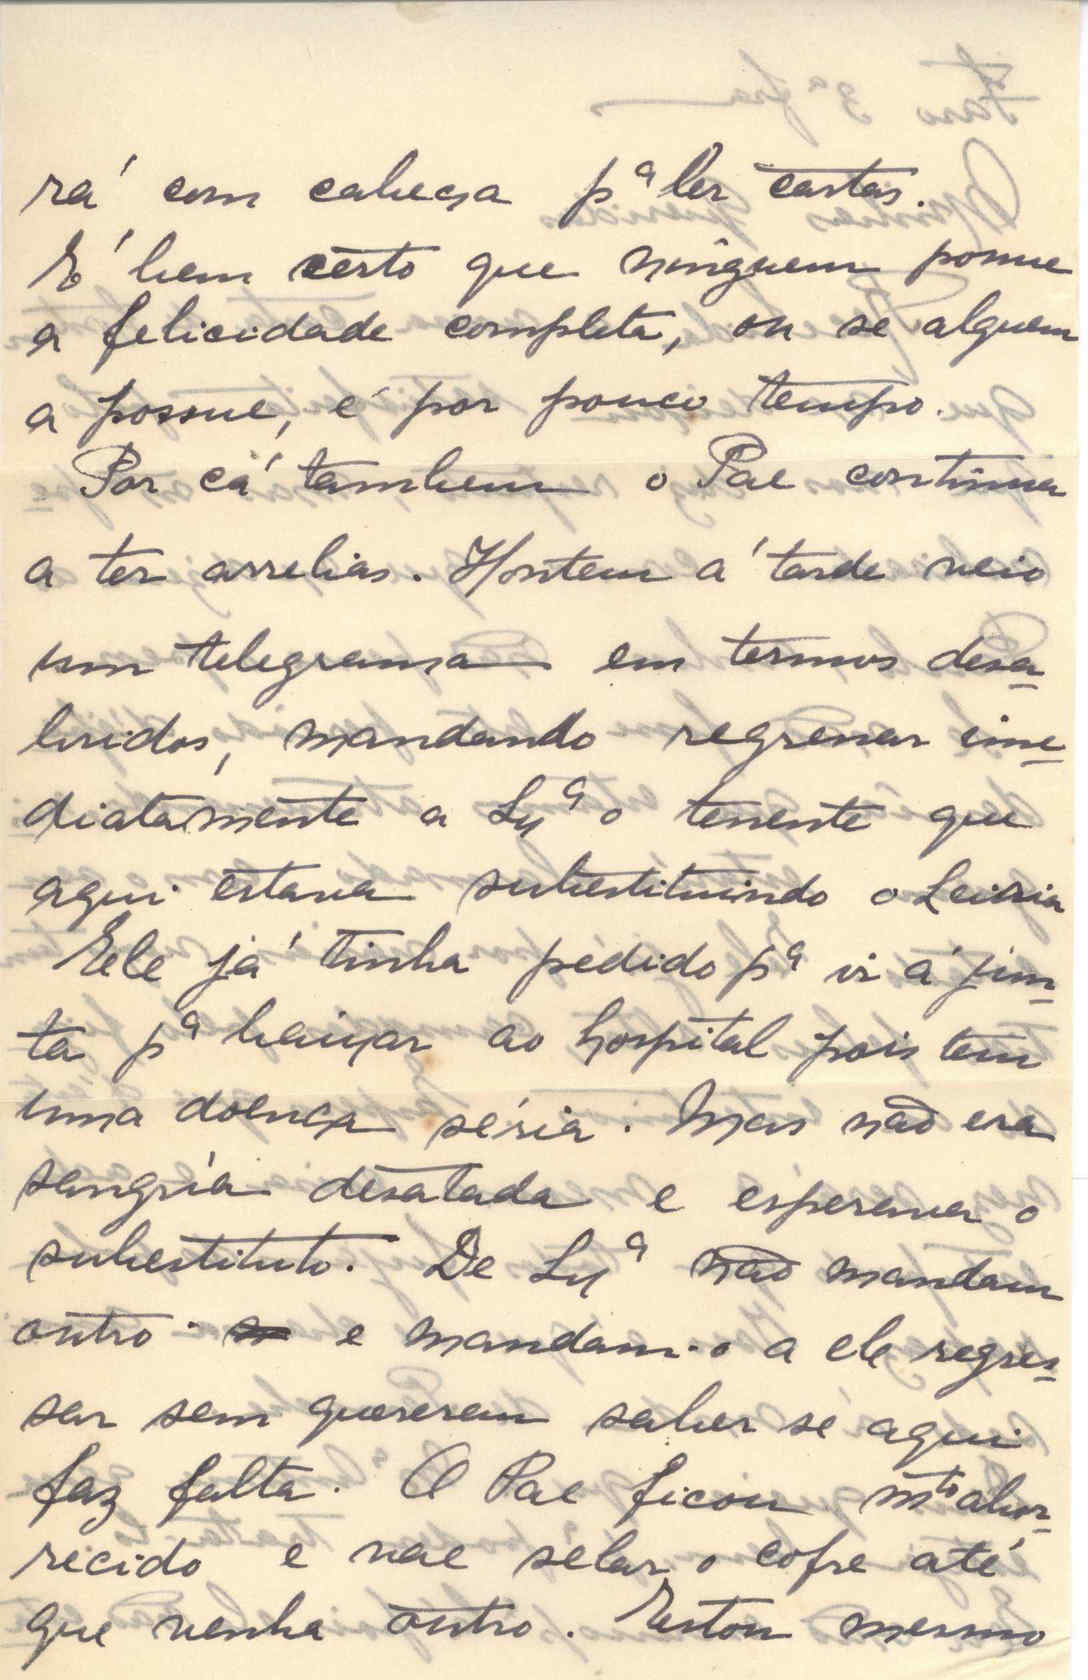 rá com cabeça pª ler cartas.
É bem certo que ninguem possue
a felicidade completa, ou se alguem
a possue, é por pouco tempo.
Por cá tambem o Pae continua
a ter arrelias. Hontem á tarde veio
um telegrama em termos desa-
bridos, mandando regressar ime-
diatamente a Lxª o tenente que
aqui estava substituindo o Leiria
Ele já tinha pedido pª ir á jun-
ta pª baixar ao hospital pois tem
uma doença séria. Mas não era
sangria desatada e esperava o
substituto. De Lxª não mandam
outro e mandam-o a ele regres-
sar sem quererem saber se aqui
faz falta. O Pae ficou mto abor-
recido e vae selar o cofre até
que venha outro. Estou mesmo